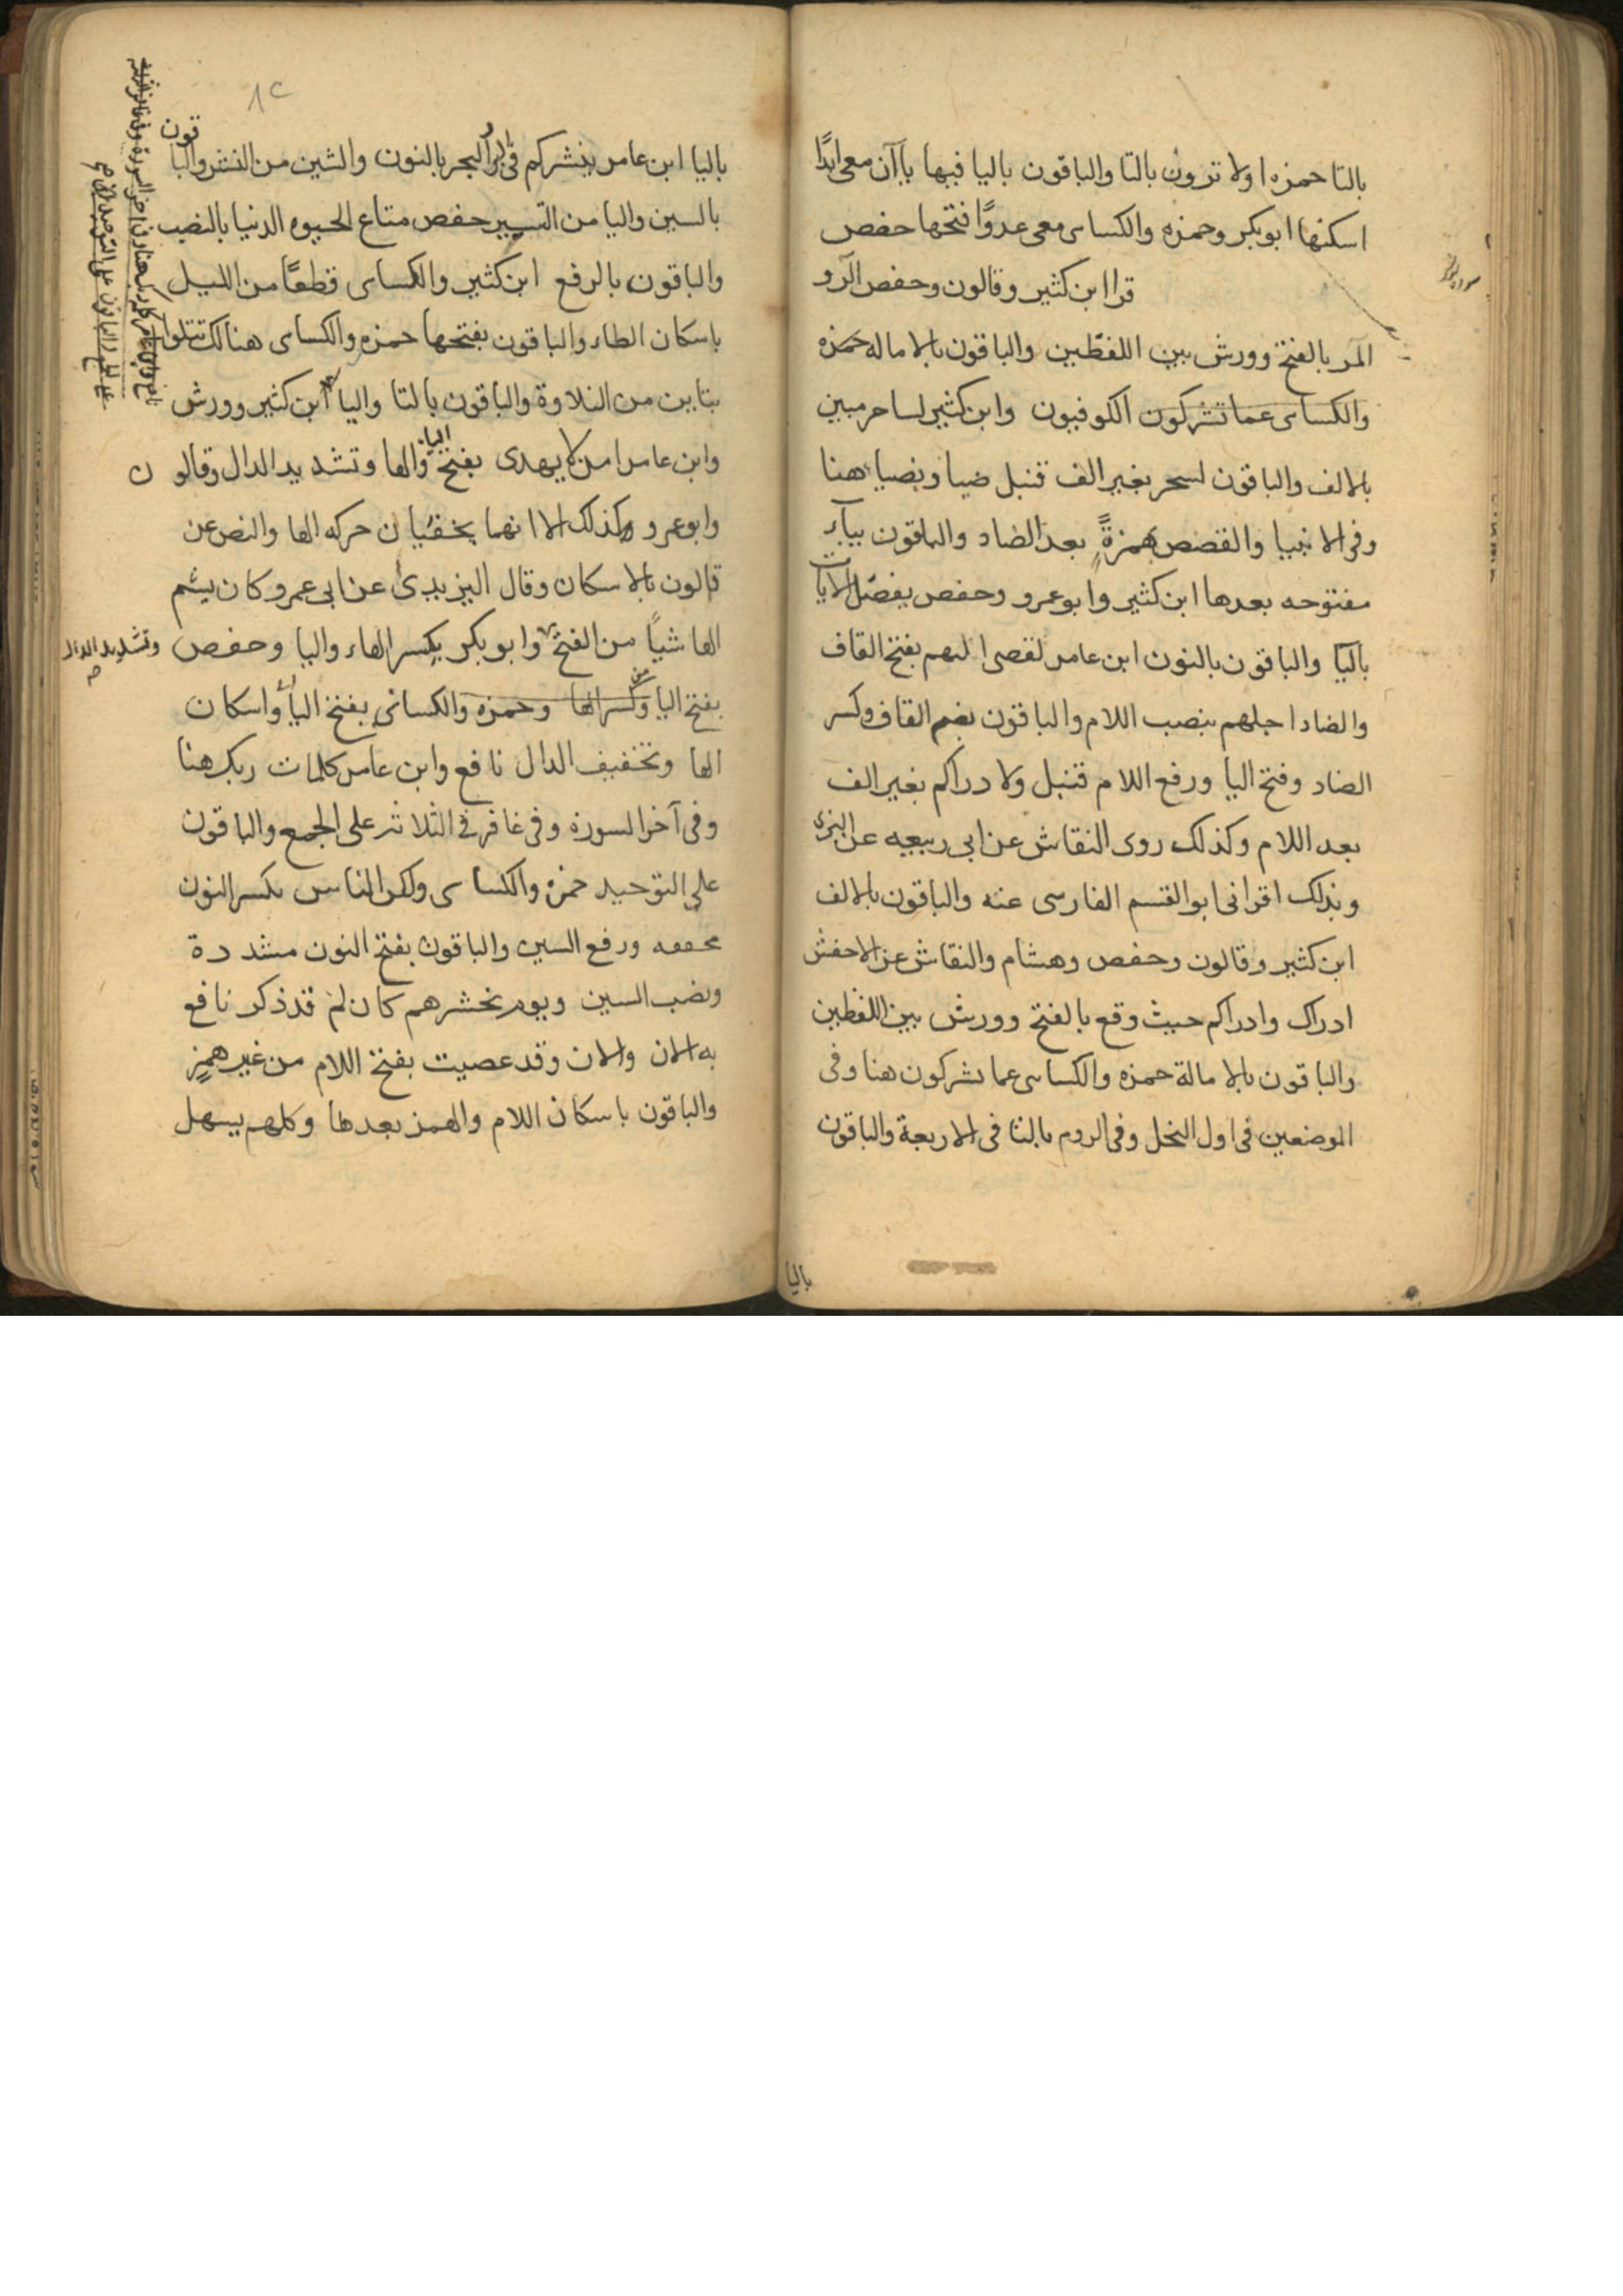 بالتا حمزه اولا ترون بالتا والباقون باليا فيها ياآن معى ابدًا
اسكنها ابوبكر وحمزه والكساى معى عدوًا فتحها حفص
قرا ابن كثير وقالون وحفص الرو
المر بالفتح وورش بين اللفظين والباقون بالاماله حمزه
والكساى عما تشركون الكوفيون وابن كثير لساحر مبين
بالالف والباقون لسحر بغير الف قنبل ضيا وبضيا هنا
وفى الانبيا والقصص بهمزةٍ بعد الضاد والباقون بياء
مفتوحه بعدها ابن كثير وابو عمرو وحفص يفصّل الايات
باليا والباقون بالنون ابن عامر لقضى اليهم بفتح القاف
والضاد اجلهم بنصب اللام والباقون بضم القاف وكسر
الضاد وفتح اليا ورفع اللام قنبل ولا دراكم بغير الف
بعد اللام وكذلك روى النقاش عن ابى ربيعه عن البزى
وبذلك اقرانى ابو القسم الفارسى عنه والباقون بالالف
ابن كثير وقالون وحفص وهشام والنقاش عن الاخفش
ادراك وادراكم حيث وقع بالفتح وورش بين اللفظين
والباقون بالامالة حمزه والكساى عما تشركون هنا وفى
الموضعين فى اول النحل وفى الروم بالتا فى الاربعة والباقون
باليا
١٢
باليا ابن عامر ينشركم فى البر والبحر بالنون والشين من النشر والباقون
بالسين واليا من التسيير حفص متاع الحيوه الدنيا بالنصب
والباقون بالرفع ابن كثير والكساى قطعًا من الليل
باسكان الطاء والباقون بفتحها حمزه والكساى هنالك تتلوا
بتاين من التلاوة والباقون بالتا واليا ابن كثير وورش
وابن عامر امن لا يهدى بفتح اليا والها وتشديد الدال وقالون
وابو عمرو كذلك الا انهما يخفيان حركه الها والنص عن
قالون بالاسكان وقال اليزيدى عن ابى عمرو كان يشم
الها شياً من الفتح وابو بكر بكسر الهاء واليا وحفص
وتشديد الدال
بفتح اليا وكسر الها وحمزه والكسائى بفتح اليا واسكان
الها وتخفيف الدال نافع وابن عامر كلمات ربك هنا
وفى آخر السورة وفى غافر فى الثلاثه على الجمع والباقون
على التوحيد حمزه والكساى ولكن الناس بكسر النون
مخففه ورفع السين والباقون بفتح النون مشددة
ونصب السين ويوم نحشرهم كان لم قد ذكر نافع
به الان والان وقد عصيت بفتح اللام من غير همزٍ
والباقون باسكان اللام والهمز بعدها وكلهم يسهل